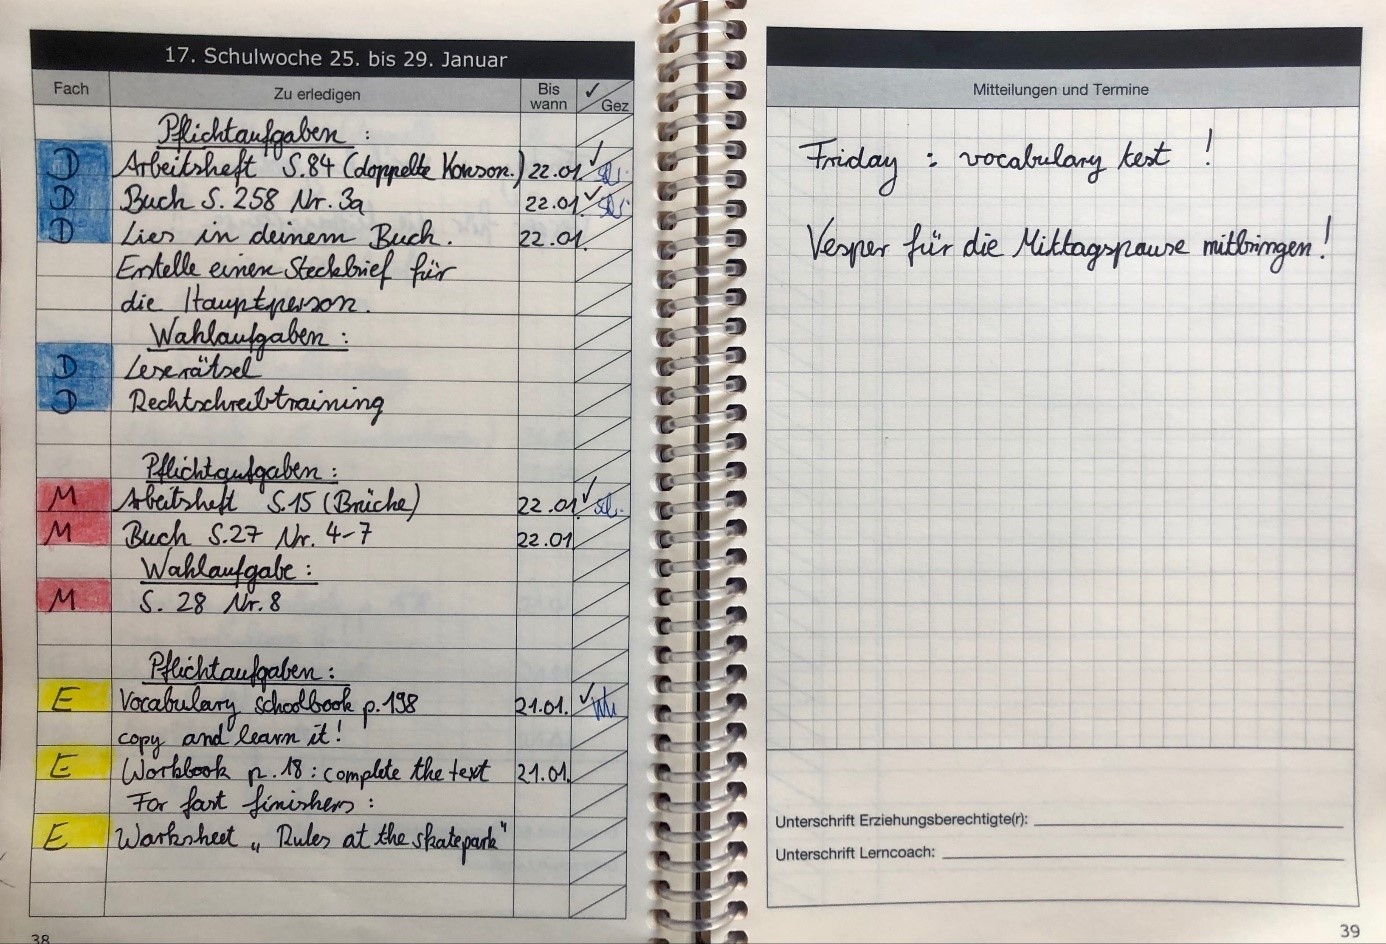 17. Schulwoche 25. bis 29. Januar
Fach Zu erledigen Bis wann ✓ Gez
Pflichtaufgaben :
D Arbeitsheft S.84 (doppelte Konson.) 22.01. ✓
D Buch S. 258 Nr. 3a 22.01. ✓
D Lies in deinem Buch. 22.01.
Erstelle einen Steckbrief für
die Hauptperson.
Wahlaufgaben :
D Leserätsel
D Rechtschreibtraining
Pflichtaufgaben :
M Arbeitsheft S.15 (Brüche) 22.01. ✓
M Buch S.27 Nr. 4-7 22.01
Wahlaufgabe :
M S. 28 Nr. 8
Pflichtaufgaben :
E Vocabulary schoolbook p.198 21.01. ✓
copy and learn it!
E Workbook p. 18 : complete the text 21.01.
For fast finishers :
E Worksheet „ Rules at the skatepark"
38
Mitteilungen und Termine
Friday : vocabulary test !
Vesper für die Mittagspause mitbringen!
Unterschrift Erziehungsberechtigte(r):
Unterschrift Lerncoach:
39